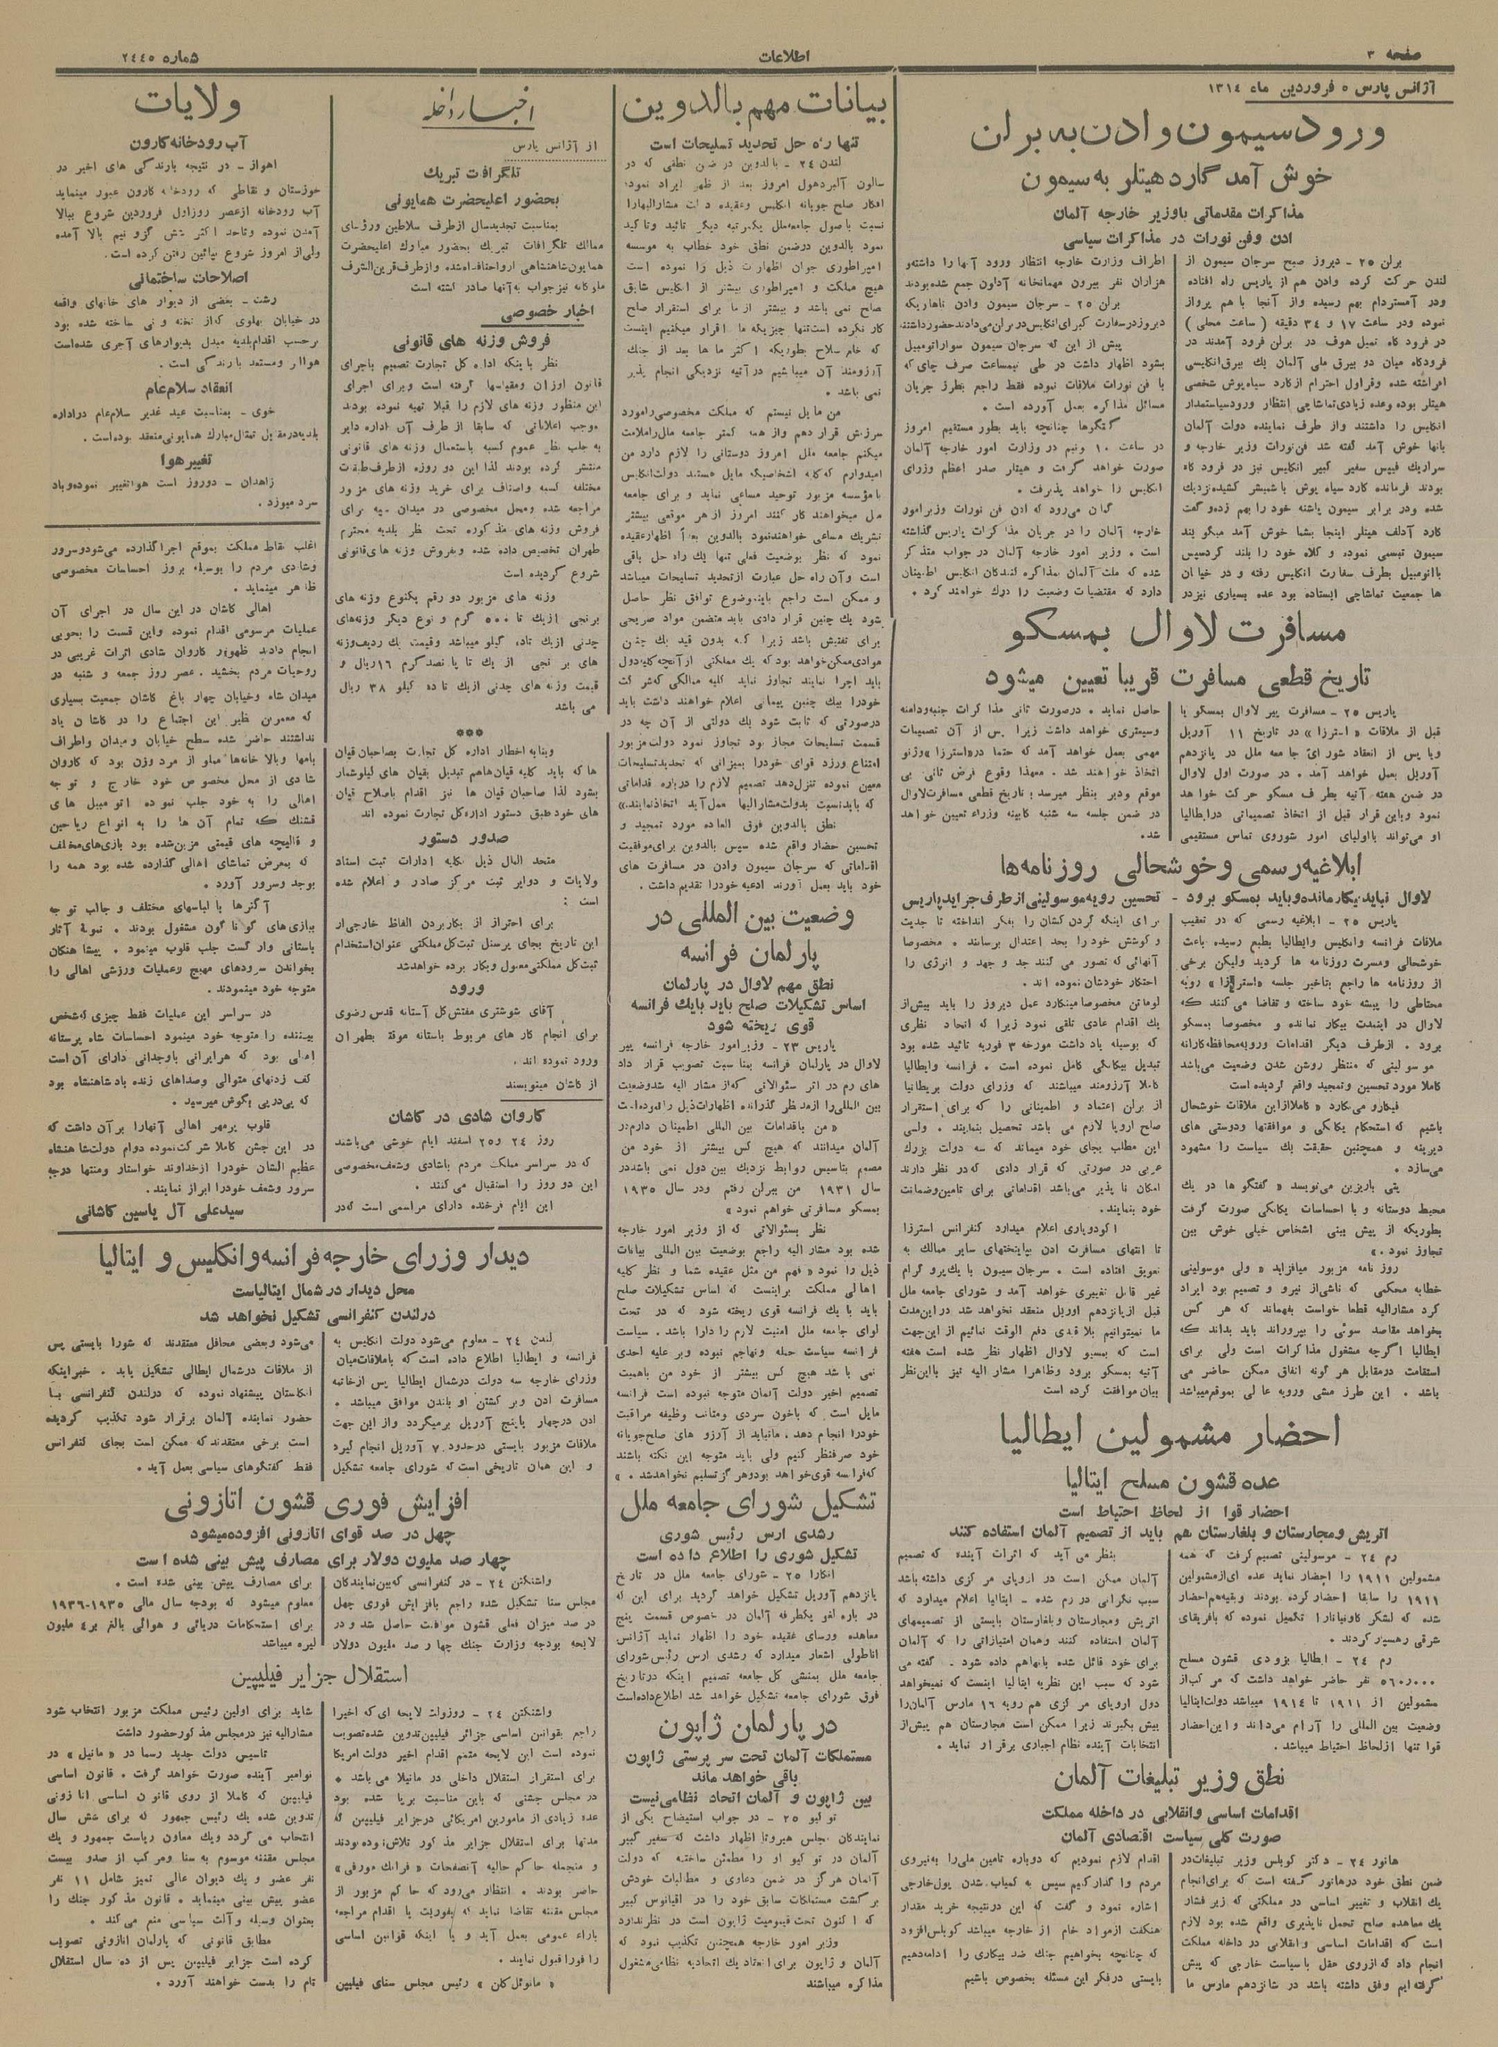 صفحه ۳
اطلاعات
شماره ۲۴۴۵
آژانس پارس ۵ فروردین ماه ۱۳۱۴
ورود سیمون و ادن به برلن
خوش آمد گارد هیتلر به سیمون
مذاکرات مقدماتی با وزیر خارجه آلمان
ادن وفن نورات در مذاکرات سیاسی
برلن ۲۵ - دیروز صبح سرجان سیمون از
لندن حرکت کرده وادن هم از پاریس راه افتاده
ودر آمستردام بهم رسیده واز آنجا با هم پرواز
نموده ودر ساعت ۱۷ و ۳۴ دقیقه (ساعت محلی)
در فرودگاه تمپل هوف در برلن فرود آمدند در
فرودگاه میان دو بیرق ملی آلمان یک بیرق انگلیسی
افراشته شده وقراول احترام از گارد سیاه پوش شخصی
هیتلر بوده وعده زیادی تماشاچی انتظار ورود سیاستمدار
انگلیس را داشتند واز طرف نماینده دولت آلمان
بآنها خوش آمد گفته شد فن نورات وزیر خارجه و
سراریک فیپس سفیر کبیر انگلیس نیز در فرودگاه
بودند فرمانده گارد سیاه پوش با شمشیر کشیده نزدیک
شده ودر برابر سیمون پاشنه خود را بهم زده و گفت
گارد آدلف هیتلر اینجا بشما خوش آمد میگویند
سیمون تبسمی نموده و کلاه خود را بلند کرد سپس
با اتومبیل بطرف سفارت انگلیس رفته و در خیابان
ها جمعیت تماشاچی ایستاده بود عده بسیاری نیز در
اطراف وزارت خارجه انتظار ورود آنها را داشته و
هزاران نفر بیرون مهمانخانه آدلون جمع شده بودند
برلن ۲۵ - سرجان سیمون وادن ناهار یکه
دیروز در سفارت کبرای انگلیس در برلن می دادند حضور داشتند
پیش از این که سرجان سیمون سوار اتومبیل
بشود اظهار داشت در طی نیمساعت صرف چای که
با فن نورات ملاقات نموده فقط راجع بطرز جریان
مسائل مذاکره بعمل آورده است .
گفتگوها چنانچه باید بطور مستقیم امروز
در ساعت ۱۰ ونیم در وزارت امور خارجه آلمان
صورت خواهد گرفت و هیتلر صدر اعظم وزرای
انگلیس را خواهد پذیرفت .
گمان می رود که ادن فن نورات وزیر امور
خارجه آلمان را در جریان مذاکرات پاریس گذاشته
است . وزیر امور خارجه آلمان در جواب متذکر
شده که ملت آلمان بمذاکره کنندگان انگلیس اطمینان
دارد که مقتضیات وضعیت را درک خواهند کرد .
مسافرت لاوال بمسکو
تاریخ قطعی مسافرت قریبا تعیین میشود
پاریس ۲۵ - مسافرت پیر لاوال بمسکو یا
قبل از ملاقات «استرزا» در تاریخ ۱۱ آوریل
ویا پس از انعقاد شورای جامعه ملل در پانزدهم
آوریل بعمل خواهد آمد . در صورت اول لاوال
در ضمن هفته آتیه بطرف مسکو حرکت خواهد
نمود وباین قرار قبل از اتخاذ تصمیماتی در ایتالیا
او می تواند با اولیای امور شوروی تماس مستقیمی
حاصل نماید . در صورت ثانی مذاکرات جنبه و دامنه
وسیعتری خواهد داشت زیرا پس از آن تصمیمات
مهمی بعمل خواهد آمد که حتما در «استرزا» و ژنو
اتخاذ خواهند شد . معهذا وقوع فرض ثانی بی
موقع ودیر بنظر میرسد : تاریخ قطعی مسافرت لاوال
در ضمن جلسه سه شنبه کابینه وزراء تعیین خواهد
شد.
ابلاغیه رسمی و خوشحالی روزنامه ها
لاوال نباید بیکار مانده و باید بمسکو برود - تحسین رویه موسولینی از طرف جراید پاریس
پاریس ۲۵ - ابلاغیه رسمی که در تعقیب
ملاقات فرانسه وانگلیس وایطالیا بطبع رسیده باعث
خوشحالی ومسرت روزنامه ها گردید ولیکن برخی
از روزنامه ها راجع بتاخیر جلسه «استرزا» رویه
محتاطی را پیشه خود ساخته و تقاضا می کنند که
لاوال در اینمدت بیکار نمانده و مخصوصا بمسکو
برود . از طرف دیگر اقدامات ورویه محافظه کارانه
موسولینی که منتظر روشن شدن وضعیت می باشد
کاملا مورد تحسین وتمجید واقع گردیده است
فیگارو می نگارد « کاملا از این ملاقات خوشحال
باشیم که استحکام یگانگی و موافقتها ودوستی های
دیرینه و همچنین حقیقت یک سیاست را مشهود
می سازد.
پتی پاریزین می نویسد « گفتگوها در یک
محیط دوستانه و با احساسات یگانگی صورت گرفت
بطوریکه از پیش بینی اشخاص خیلی خوش بین
تجاوز نمود . »
روزنامه مزبور میافزاید « ولی موسولینی
خطابه محکمی که ناشی از نیرو و تصمیم بود ایراد
کرد مشارالیه قطعا خواست بفهماند که هر کس
بخواهد مقاصد سوئی را بپروراند باید بداند که
ایطالیا اگرچه مشغول مذاکرات است ولی برای
استقامت در مقابل هر گونه اتفاق ممکن حاضر می
باشد . این طرز مشی ورویه عالی بموقع میباشد
برای اینکه گردن کشان را بفکر انداخته تا جدیت
و کوشش خود را بحد اعتدال برسانند . مخصوصا
آنهائی که تصور می کنند جد و جهد و انرژی را
احتکار خودشان نموده اند .
لوماتن مخصوصا مینگارد عمل دیروز را باید بیش از
یک اقدام عادی تلقی نمود زیرا که اتحاد نظری
که بوسیله یاد داشت مورخه ۳ فوریه تائید شده بود
تبدیل بیگانگی کامل نموده است . فرانسه وایطالیا
کاملا آرزومند میباشند که وزرای دولت بریطانیا
از برلن اعتماد و اطمینانی را که برای استقرار
صلح اروپا لازم می باشد تحصیل بنمایند . ولسی
این مطلب بجای خود میماند که سه دولت بزرک
غربی در صورتی که قرار دادی که در نظر دارند
امکان ناپذیر می باشد اقداماتی برای تامین وضمانت
خود بنمایند .
اکودوپاری اعلام میدارد کنفرانس استرزا
تا انتهای مسافرت ادن بپایتختهای سایر ممالک به
تعویق افتاده است . سرجان سیمون با یک پروگرام
غیر قابل تغییری خواهد آمد و شورای جامعه ملل
قبل از پانزدهم اوریل منعقد نخواهد شد در این مدت
ما نمیتوانیم بلا قیدی دفع الوقت نمائیم از این جهت
است که بمسیو لاوال اظهار نظر شده است هفته
آتیه بمسکو برود وظاهرا مشار الیه نیز با این نظر
بیان موافقت کرده است
احضار مشمولین ایطالیا
عده قشون مسلح ایتالیا
احضار قوا از لحاظ احتیاط است
اتریش و مجارستان و بلغارستان هم باید از تصمیم آلمان استفاده کنند
رم ۲۴ - موسولینی تصمیم گرفت که همه
مشمولین ۱۹۱۱ را احضار نماید عده ای از مشمولین
۱۹۱۱ را سابقا احضار کرده بودند وبقیه هم احضار
شده که لشکر کاویانارا تکمیل نموده که بافریقای
شرقی رهسپار گردند .
رم ۲۴ - ایطالیا بزودی قشون مسلح
۵۶۰٫۰۰۰ نفر حاضر خواهد داشت که مرکب از
مشمولین از ۱۹۱۱ تا ۱۹۱۴ میباشد دولت ایتالیا
وضعیت بین المللی را آرام می داند و این احضار
قوا تنها از لحاظ احتیاط میباشد .
بنظر می آید که اثرات آینده که تصمیم
آلمان ممکن است در اروپای مرکزی داشته باشد
سبب نگرانی در رم شده - ایتالیا اعلام میدارد که
اتریش ومجارستان وبلغارستان بایستی از تصمیمهای
آلمان استفاده کنند وهمان امتیازاتی را که آلمان
برای خود قائل شده بآنها هم داده شود . گفته می
شود که سبب این نظریه ایتالیا اینست که نمیخواهد
دول اروپای مرکزی هم رویه ۱۶ مارس آلمان را
پیش بگیرند زیرا ممکن است مجارستان هم پیش از
انتخابات آینده نظام اجباری برقرار نماید .
نطق وزیر تبلیغات آلمان
اقدامات اساسی و انقلابی در داخله مملکت
صورت کلی سیاست اقتصادی آلمان
هانور ۲۴ - دکتر گوبلس وزیر تبلیغات در
ضمن نطق خود در هانور گفته است که برای انجام
یک انقلاب و تغییر اساسی در مملکتی که زیر فشار
یک معاهده صلح تحمل ناپذیری واقع شده بود لازم
است که اقدامات اساسی وانقلابی در داخله مملکت
انجام داد که از روی عقل با سیاست خارجی که پیش
گرفته ایم وفق داشته باشد در شانزدهم مارس ما
اقدام لازم نمودیم که دوباره تامین ملی را به نیروی
مردم وا گذار کنیم سپس به کمیاب شدن پول خارجی
اشاره نمود و گفت که این درنتیجه خرید مقدار
هنگفت از مواد خام از خارجه میباشد گوبلس افزود
که چنانچه بخواهیم جنک ضد بیکاری را ادامه دهیم
بایستی در فکر این مسئله بخصوص باشیم
بیانات مهم بالدوین
تنها راه حل تحدید تسلیحات است
لندن ۲۴ - بالدوین در ضمن نطقی که در
سالون آلبردهول امروز بعد از ظهر ایراد نموده
افکار صلح جویانه انگلیس وعقیده دولت مشارالیها را
نسبت باصول جامعه ملل یکمرتبه دیگر تائید وتاکید
نمود بالدوین درضمن نطق خود خطاب به موسسه
امپراطوری جوان اظهارات ذیل را نموده است
هیچ مملکت و امپراطوری بیشتر از انگلیس شایق
صلح نمی باشد و بیشتر از ما برای استقرار صلح
کار نکرده است تنها چیزیکه ما اقرار میکنیم اینست
که خلع سلاح بطوریکه اکثر ماها بعد از جنک
آرزومند آن میباشیم در آتیه نزدیکی انجام پذیر
نمی باشد .
من مایل نیستم که مملکت مخصوصی را مورد
سرزنش قرار دهم واز همه کمتر جامعه ملل را ملامت
میکنم جامعه ملل امروز دوستانی را لازم دارد من
امیدوارم که کلیه اشخاصیکه مایل هستند دولت انگلیس
با مؤسسه مزبور توحید مساعی نماید و برای جامعه
ملل میخواهند کار کنند امروز از هر موقعی بیشتر
تشریک مساعی خواهند نمود بالدوین بعدا اظهار عقیده
نمود که نظر بوضعیت فعلی تنها یک راه حل باقی
است وآن راه حل عبارت از تحدید تسلیحات میباشد
و ممکن است راجع باین موضوع توافق نظر حاصل
شود یک چنین قرار دادی باید متضمن مواد صریحی
برای تفتیش باشد زیرا که بدون قید یک چنین
موادی ممکن خواهد بود که یک مملکتی از آنچه کلیه دول
باید اجرا نمایند تجاوز نماید کلیه ممالکی که شرکت
خود را بیک چنین پیمانی اعلام خواهند داشت باید
در صورتی که ثابت شود یک دولتی از آن چه در
قسمت تسلیحات مجاز بود تجاوز نمود دولت مزبور
امتناع ورزد قوای خود را بمیزانی که تحدید تسلیحات
معین نموده تنزل دهد تصمیم لازم را درباره قدماتی
که باید نسبت بدولت مشارالیها بعمل آید اتخاذ نمایند»
نطق بالدوین فوق العاده مورد تمجید و
تحسین حضار واقع شده سپس بالدوین برای موفقیت
اقداماتی که سرجان سیمون وادن در مسافرت های
خود باید بعمل آورند ادعیه خود را تقدیم داشت .
وضعیت بین المللی در
پارلمان فرانسه
نطق مهم لاوال در پارلمان
اساس تشکیلات صلح باید بایک فرانسه
قوی ریخته شود
پاریس ۲۳ - وزیر امور خارجه فرانسه پیر
لاوال در پارلمان فرانسه بمناسبت تصویب قرارداد
های رم در اثر سئوالاتی که از مشار الیه شد وضعیت
بین المللی را از مد نظر گذرانده اظهارات ذیل را نموده است
« من باقدامات بین المللی اطمینان دارم در
آلمان میدانند که هیچ کس بیشتر از خود من
مصمم بتاسیس روابط نزدیک بین دول نمی باشد در
سال ۱۹۳۱ من ببرلن رفتم ودر سال ۱۹۳۵
بمسکو مسافرتی خواهم نمود »
نظر بسئوالاتی که از وزیر امور خارجه
شده بود مشار الیه راجع بوضعیت بین المللی بیانات
ذیل را نمود « فهم من مثل عقیده شما و نظر کلیه
اهالی مملکت براینست که اساس تشکیلات صلح
باید با یک فرانسه قوی ریخته شود که در تحت
لوای جامعه ملل امنیت لازم را دارا باشد . سیاست
فرانسه سیاست حمله وتهاجم نبوده وبر علیه احدی
نمی باشد هیچ کس بیشتر از خود من باهمیت
تصمیم اخیر دولت آلمان متوجه نبوده است فرانسه
مایل است که باخون سردی ومتانت وظیفه مراقبت
خود را انجام دهد . ما نباید از آرزو های صلح جویانه
خود صرفنظر کنیم ولی باید متوجه این نکته باشند
که فرانسه قوی خواهد بود و هرگز تسلیم نخواهد شد . »
تشکیل شورای جامعه ملل
رشدی ارس رئیس شوری
تشکیل شوری را اطلاع داده است
انکارا ۲۵ - شورای جامعه ملل در تاریخ
پانزدهم آوریل تشکیل خواهد گردید برای این که
در باره لغو یکطرفه آلمان در خصوص قسمت پنج
معاهده ورسای عقیده خود را اظهار نماید آژانس
اناطولی اشعار میدارد که رشدی ارس رئیس شورای
جامعه ملل بمنشی کل جامعه تصمیم اینکه در تاریخ
فوق شورای جامعه تشکیل خواهد شد اطلاع داده است
در پارلمان ژاپون
مستملکات آلمان تحت سر پرستی ژاپون
باقی خواهد ماند
بین ژاپون و آلمان اتحاد نظامی نیست
توکیو ۲۵ - در جواب استیضاح یکی از
نمایندگان مجلس هیروتا اظهار داشت که سفیر کبیر
آلمان در توکیو او را مطمئن ساخته که دولت
آلمان هرگز در ضمن دعاوی و مطالبات خودش
برگشت مستملکات سابق خود را در اقیانوس کبیر
که اکنون تحت قیمومیت ژاپون است در نظر ندارد
وزیر امور خارجه همچنین تکذیب نمود که
آلمان و ژاپون برای انعقاد یک اتحادیه نظامی مشغول
مذاکره میباشند
اخبار داخله
از آژانس پارس
تلگرافات تبریک
بحضور اعلیحضرت همایونی
بمناسبت تجدید سال از طرف سلاطین ورؤسای
ممالک تلگرافات تبریک بحضور مبارک اعلیحضرت
همایون شاهنشاهی ارواحنافداه شده واز طرف قرین الشرف
ملوکانه نیز جواب به آنها صادر گشته است
اخبار خصوصی
فروش وزنه های قانونی
نظر باینکه اداره کل تجارت تصمیم باجرای
قانون اوزان ومقیاسها گرفته است وبرای اجرای
این منظور وزنه های لازم را قبلا تهیه نموده بودند
موجب اعلاناتی که سابقا از طرف آن اداره دایر
به جلب نظر عموم کسبه باستعمال وزنه های قانونی
منتشر کرده بودند لذا این دو روزه از طرف طبقات
مختلفه کسبه واصناف برای خرید وزنه های مزبور
مراجعه شده ومحل مخصوصی در میدان سپه برای
فروش وزنه های مذکوره تحت نظر بلدیه محترم
طهران تخصیص داده شده وبفروش وزنه های قانونی
شروع گردیده است
وزنه های مزبور دو رقم یکنوع وزنه های
برنجی از یک تا ۵۰۰ گرم و نوع دیگر وزنه های
چدنی از یک تا ده کیلو میباشد وقیمت یک ردیف وزنه
های برنجی از یک تا پانصد گرم ۱۶ ریال و
قیمت وزنه های چدنی از یک تا ده کیلو ۳۸ ریال
می باشد
***
وبنابه اخطار اداره کل تجارت بصاحبان قپان
ها که باید کلیه قپان هاهم تبدیل بقپان های کیلوشمار
بشود لذا صاحبان قپان ها نیز اقدام باصلاح قپان
های خود طبق دستور اداره کل تجارت نموده اند
صدور دستور
متحد المال ذیل بکلیه ادارات ثبت اسناد
ولایات و دوایر ثبت مرکز صادر و اعلام شده
است :
برای احتراز از بکار بردن الفاظ خارجی از
این تاریخ بجای پرسنل ثبت کل مملکتی عنوان استخدام
ثبت کل مملکتی معمول وبکار برده خواهد شد
ورود
آقای شوشتری مفتش کل آستانه قدس رضوی
برای انجام کار های مربوط باستانه موقة بطهران
ورود نموده اند .
از کاشان مینویسند
کاروان شادی در کاشان
روز ۲۴ و۲۵ اسفند ایام خوشی می باشند
که در سراسر مملکت مردم باشادی وشعف مخصوصی
این دو روز را استقبال می کنند .
این ایام فرخنده دارای مراسمی است که در
ولایات
آب رودخانه کارون
اهواز - در نتیجه بارندگی های اخیر در
خوزستان و نقاطی که رودخانه کارون عبور مینماید
آب رودخانه از عصر روز اول فروردین شروع ببالا
آمدن نموده وتا حد اکثر شش گز و نیم بالا آمده
ولی از امروز شروع بپائین رفتن کرده است .
اصلاحات ساختمانی
رشت - بعضی از دیوار های خانهای واقعه
در خیابان پهلوی که از تخته و نی ساخته شده بود
برحسب اقدام بلدیه مبدل بدیوارهای آجری شده است
هوا ابر ومستعد بارندگی است .
انعقاد سلام عام
خوی - بمناسبت عید غدیر سلام عام در اداره
بلدیه در مقابل تمثال مبارک همایونی منعقد بوده است.
تغییر هوا
زاهدان - دو روز است هوا تغییر نموده و باد
سرد میوزد .
اغلب نقاط مملکت بموقع اجرا گذارده می شود وسرور
وشادی مردم را بوسیله بروز احساسات مخصوصی
ظاهر مینماید .
اهالی کاشان در این سال در اجرای آن
عملیات مرسومی اقدام نموده واین قسمت را بخوبی
انجام دادند ظهور کاروان شادی اثرات غریبی در
روحیات مردم بخشید . عصر روز جمعه و شنبه در
میدان شاه وخیابان چهار باغ کاشان جمعیت بسیاری
که معمرین نظیر این اجتماع را در کاشان یاد
نداشتند حاضر شده سطح خیابان ومیدان واطراف
بامها وبالا خانه ها مملو از مرد وزن بود که کاروان
شادی از محل مخصوص خود خارج و توجه
اهالی را به خود جلب نموده اتومبیل های
قشنک که تمام آن ها را به انواع ریاحین
و قالیچه های قیمتی مزین شده بود بازی های مختلف
که بمعرض تماشای اهالی گذارده شده بود همه را
بوجد وسرور آورد .
آکترها با لباسهای مختلف و جالب توجه
ببازی های گوناگون مشغول بودند . نمونه آثار
باستانی وارگست جلب قلوب مینمود . پیشاهنگان
بخواندن سرودهای مهیج وعملیات ورزشی اهالی را
متوجه خود مینمودند .
در سراسر این عملیات فقط چیزی که شخص
بیننده را متوجه خود مینمود احساسات شاه پرستانه
اهالی بود که هر ایرانی باوجدانی دارای آن است
کف زدنهای متوالی وصداهای زنده باد شاهنشاه بود
که پی در پی بگوش میرسید .
قلوب پرمهر اهالی آنهارا برآن داشت که
در این جشن کاملا شرکت نموده دوام دولت شاهنشاه
عظیم الشان خود را از خداوند خواستار ومنتها درجه
سرور وشعف خود را ابراز نمایند .
سید علی آل یاسین کاشانی
دیدار وزرای خارجه فرانسه و انگلیس و ایتالیا
محل دیدار در شمال ایتالیاست
در لندن کنفرانسی تشکیل نخواهد شد
لندن ۲۴ - معلوم می شود دولت انگلیس به
فرانسه و ایطالیا اطلاع داده است که باملاقات میان
وزرای خارجه سه دولت درشمال ایطالیا پس از خاتمه
مسافرت ادن وبر گشتن او بلندن موافق میباشد .
ادن در چهار یا پنج آوریل برمیگردد و از این جهت
ملاقات مزبور بایستی در حدود ۷ آوریل انجام گیرد
و این همان تاریخی است که شورای جامعه تشکیل
می شود وبعضی محافل معتقدند که شورا بایستی پس
از ملاقات درشمال ایطالی تشکیل یابد . خبر اینکه
انگلستان پیشنهاد نموده که درلندن کنفرانسی با
حضور نماینده آلمان برقرار شود تکذیب گردیده
است برخی معتقدند که ممکن است بجای کنفرانس
فقط گفتگوهای سیاسی بعمل آید .
افزایش فوری قشون اتازونی
چهل در صد قوای اتازونی افزوده میشود
چهار صد ملیون دولار برای مصارف پیش بینی شده است
واشنگتن ۲۴ - در کنفرانسی که بین نمایندگان
مجلس سنا تشکیل شده راجع بافزایش فوری چهل
در صد میزان فعلی قشون موافقت حاصل شد و در
لایحه بودجه وزارت جنک چهار صد ملیون دولار
برای مصارف پیش بینی شده است .
معلوم میشود که بودجه سال مالی ۱۹۳۵-۱۹۳۶
برای استحکامات دریائی و هوائی بالغ بر ۴ ملیون
لیره میباشد
استقلال جزایر فیلیپین
واشنگتن ۲۴ - روزولت لایحه ای که اخیرا
راجع بقوانین اساسی جزائر فیلیپین تدوین شده تصویب
نموده است این لایحه متمم اقدام اخیر دولت امریکا
برای استقرار استقلال داخلی در مانیلا می باشد *
در مجلس جشنی که باین مناسبت برپا شده بود
عده زیادی از مامورین امریکائی در جزایر فیلیپین که
مدتها برای استقلال جزایر مذکور تلاش نموده بودند
و منجمله حاکم حالیه آنصفحات « فرانک مورفی »
حاضر بودند . انتظار می رود که حاکم مزبور از
مجلس مقننه تقاضا نماید که بفوریت یا اقدام مراجعه
باراء عمومی بعمل آید و یا اینکه قوانین اساسی
را فورا قبول نمایند .
« مانوئل کان » رئیس مجلس سنای فیلیپین
شاید برای اولین رئیس مملکت مزبور انتخاب شود
مشارالیه نیز درمجلس مذکور حضور داشت
تاسیس دولت جدید رسما در « مانیل » در
نوامبر آینده صورت خواهد گرفت . قانون اساسی
فیلیپین که کاملا از روی قانون اساسی اتازونی
تدوین شده یک رئیس جمهور که برای شش سال
انتخاب می گردد ویک معاون ریاست جمهور و یک
مجلس مقننه موسوم به سنا ومرکب از صدو بیست
نفر عضو و یک دیوان عالی تمیز شامل ۱۱ نفر
عضو پیش بینی مینماید . قانون مذکور جنک را
بعنوان وسیله وآلت سیاسی منع می کند .
مطابق قانونی که پارلمان اتازونی تصویب
کرده است جزایر فیلیپین پس از ده سال استقلال
تام را بدست خواهند آورد .